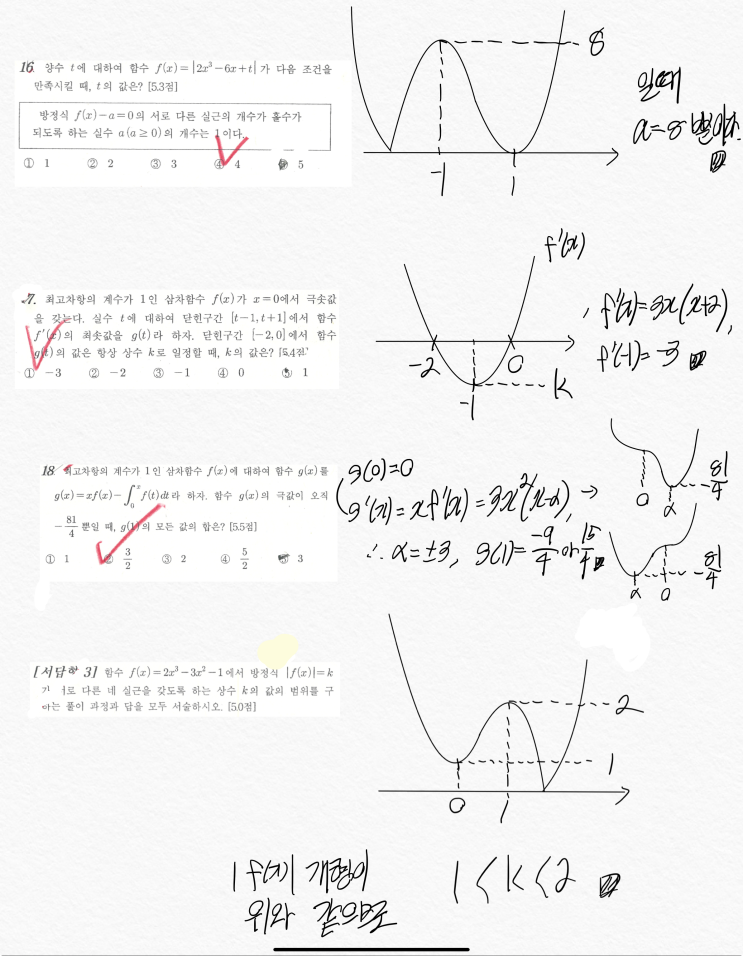 16. 양수 t에 대하여 함수 f(x)=|2x³-6x+t|가 다음 조건을
만족시킬 때, t의 값은? [5.3점]
방정식 f(x)-a=0의 서로 다른 실근의 개수가 홀수가
되도록 하는 실수 a(a≥0)의 개수는 1이다.
① 1 ② 2 ③ 3 ④ 4 5
8
-1
1
일때
a=8 뿐이다.
7. 최고차항의 계수가 1인 삼차함수 f(x)가 x=0에서 극솟값
을 갖는다. 실수 t에 대하여 닫힌구간 [t-1, t+1]에서 함수
f'(x)의 최솟값을 g(t)라 하자. 닫힌구간 [-2, 0]에서 함수
g(t)의 값은 항상 상수 k로 일정할 때, k의 값은? [5.4점]
① -3 ② -2 ③ -1 ④ 0 ⑤ 1
f'(x)
-2
0
-1
k
, f'(x)=3x(x+2),
f'(-1)=-3
18. 최고차항의 계수가 1인 삼차함수 f(x)에 대하여 함수 g(x)를
g(x)=xf(x)-∫₀ˣ f(t)dt라 하자. 함수 g(x)의 극값이 오직
-81/4뿐일 때, g(1)의 모든 값의 합은? [5.5점]
① 1 ② 3/2 ③ 2 ④ 5/2 3
g(0)=0
g'(x)=xf'(x)=3x²(x-α), →
∴ α=±3, g(1)=-9/4 or 15/4
0 α -81/4
α 0 -81/4
[서답형 3] 함수 f(x)=2x³-3x²-1에서 방정식 |f(x)|=k
로 다른 네 실근을 갖도록 하는 상수 k의 값의 범위를 구
하는 풀이 과정과 답을 모두 서술하시오. [5.0점]
2
1
0
1
|f(x)| 개형이
위와 같으므로
1<k<2